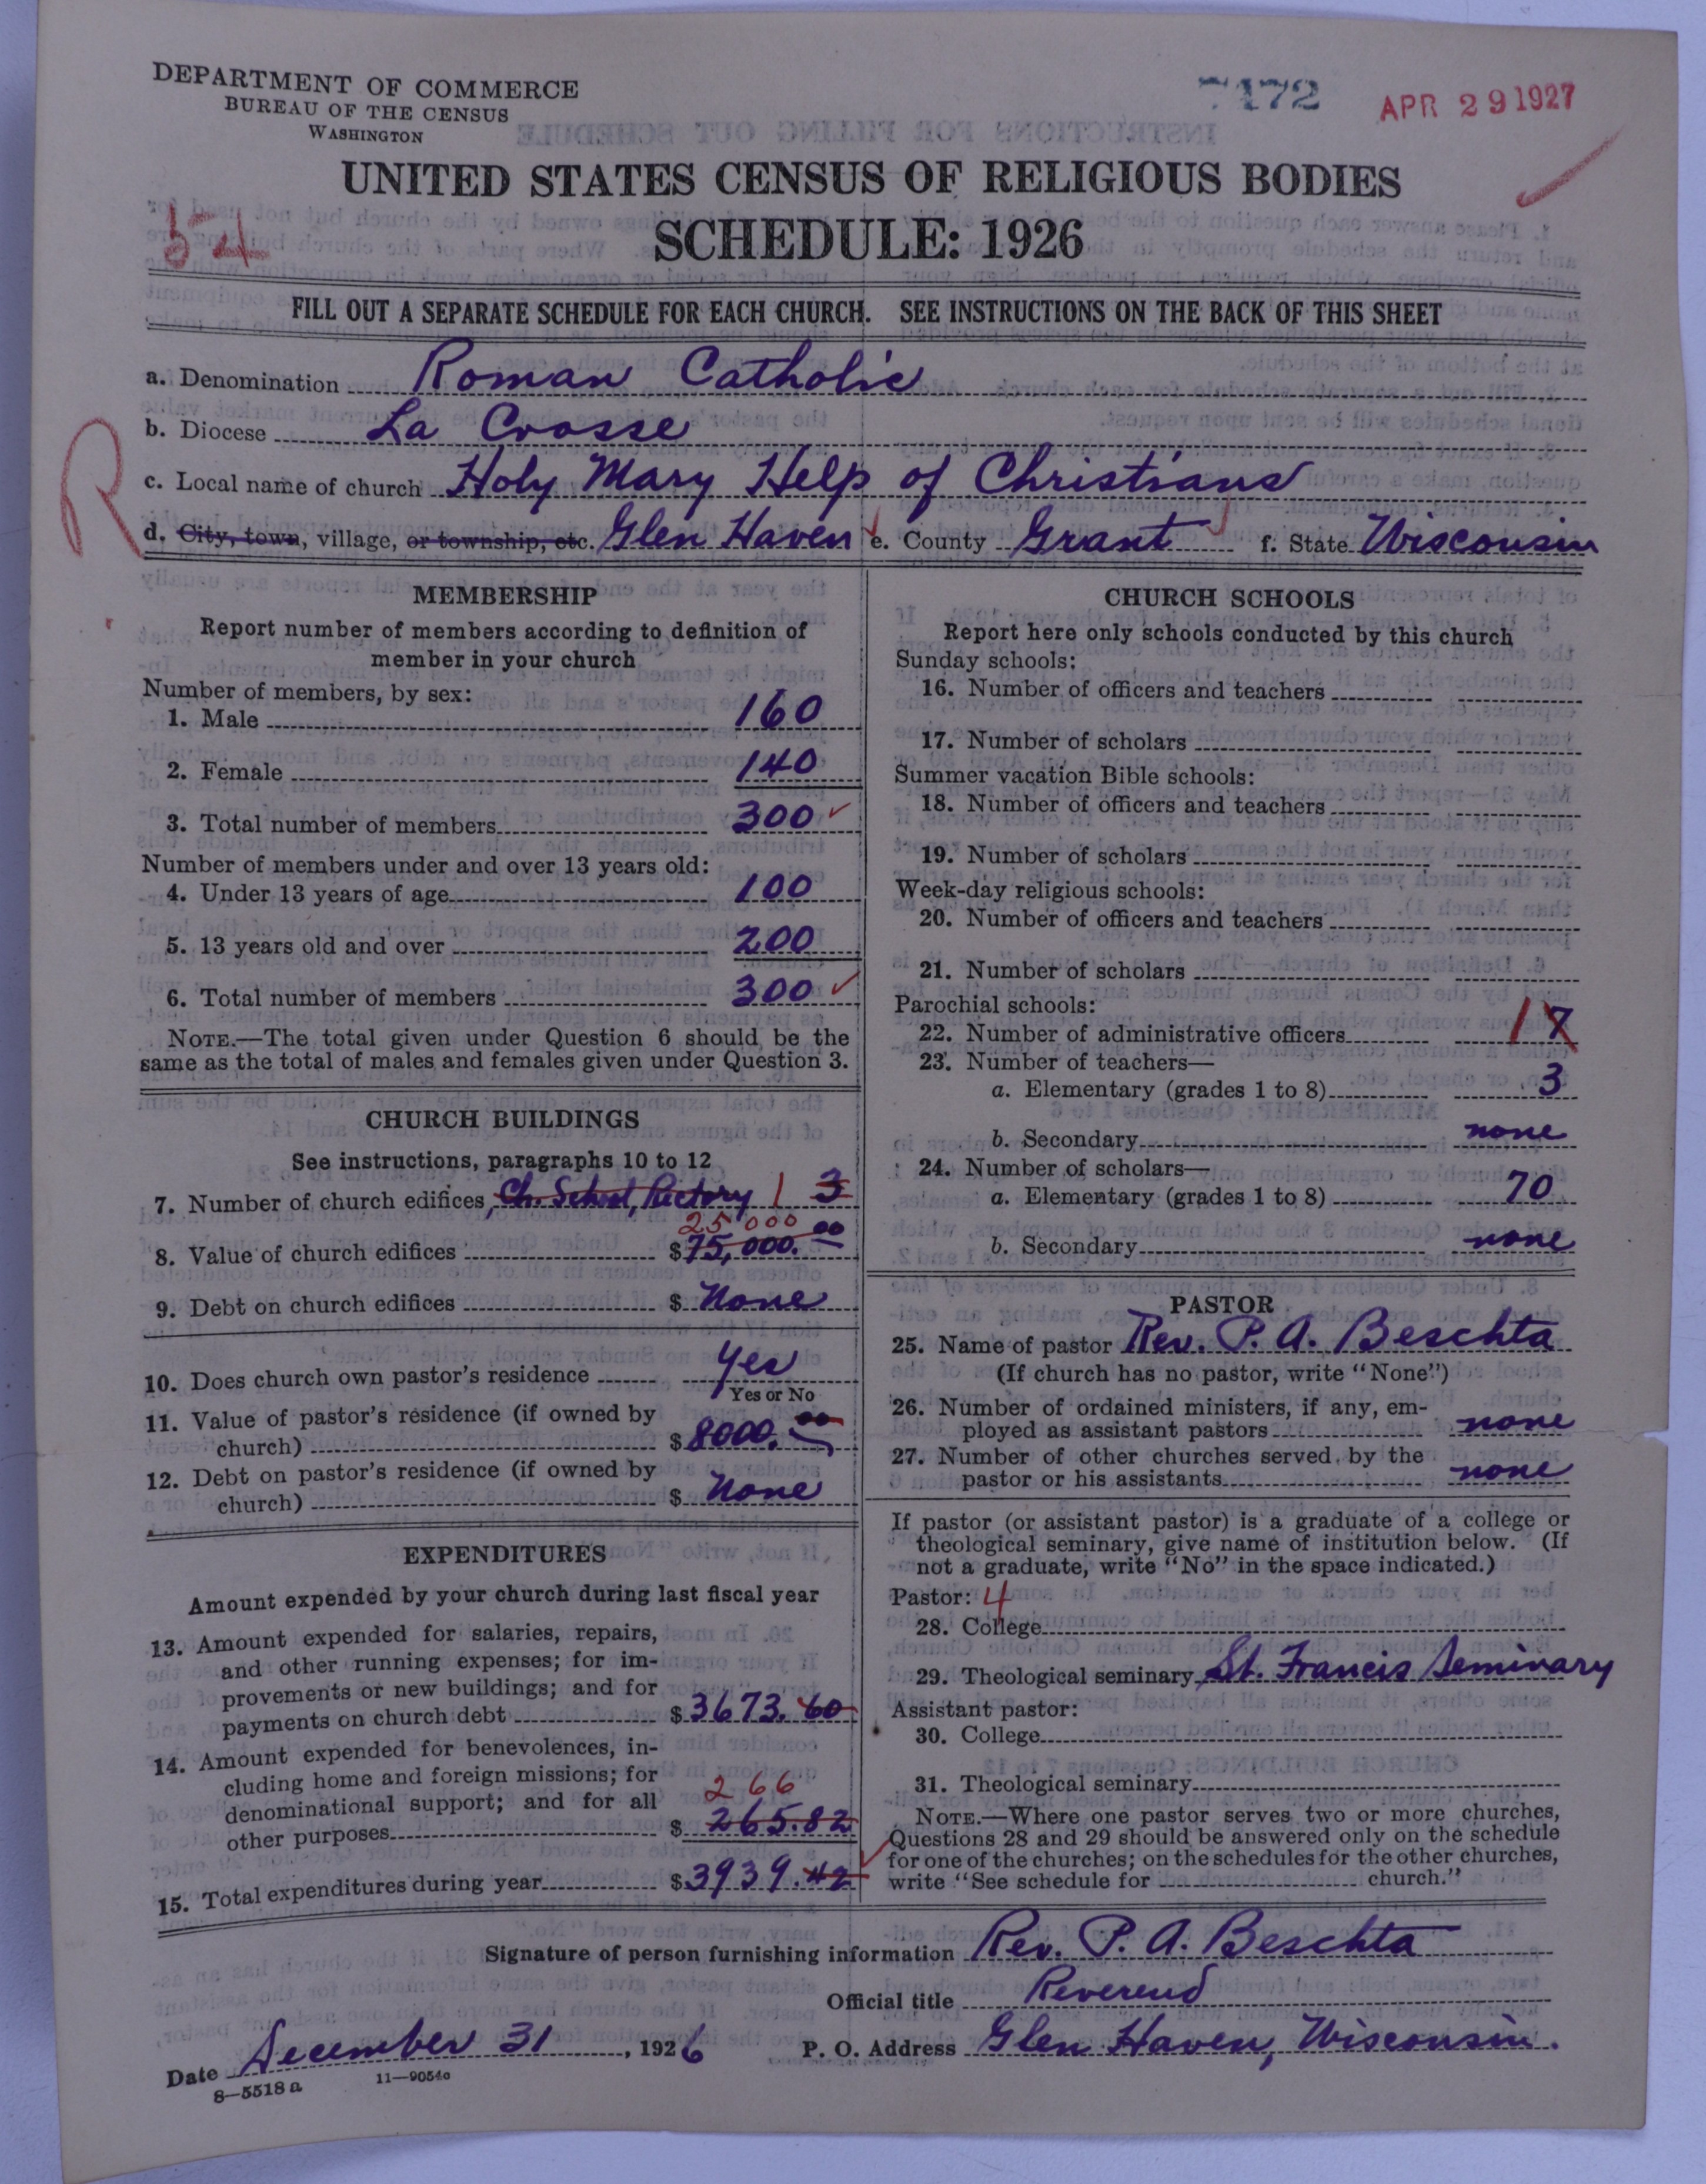 DEPARTMENT OF COMMERCE
BUREAU OF THE CENSUS
WASHINGTON
7172
APR 29 1927
UNITED STATES CENSUS OF RELIGIOUS BODIES
SCHEDULE: 1926
54
FILL OUT A SEPARATE SCHEDULE FOR EACH CHURCH. SEE INSTRUCTIONS ON THE BACK OF THIS SHEET
a. Denomination Roman Catholic
b. Diocese La Crosse
R
c. Local name of church Holy Mary Help of Christians
d. City, town, village, or township, etc. Glen Haven e. County Grant f. State Wisconsin
MEMBERSHIP
Report number of members according to definition of
member in your church
Number of members, by sex:
1. Male 160
2. Female 140
3. Total number of members 300
Number of members under and over 13 years old:
4. Under 13 years of age 100
5. 13 years old and over 200
6. Total number of members 300
NOTE.—The total given under Question 6 should be the
same as the total of males and females given under Question 3.
CHURCH BUILDINGS
See instructions, paragraphs 10 to 12
7. Number of church edifices Ch. School, Rectory 1 3
25000
8. Value of church edifices $75,000.00
9. Debt on church edifices $ None
10. Does church own pastor's residence Yes
Yes or No
11. Value of pastor's residence (if owned by
church) $8000.00
12. Debt on pastor's residence (if owned by
church) $ None
EXPENDITURES
Amount expended by your church during last fiscal year
13. Amount expended for salaries, repairs,
and other running expenses; for im-
provements or new buildings; and for
payments on church debt $3673.60
14. Amount expended for benevolences, in-
cluding home and foreign missions; for
266
denominational support; and for all
other purposes $ 265.82
15. Total expenditures during year $3939.42
CHURCH SCHOOLS
Report here only schools conducted by this church
Sunday schools:
16. Number of officers and teachers
17. Number of scholars
Summer vacation Bible schools:
18. Number of officers and teachers
19. Number of scholars
Week-day religious schools:
20. Number of officers and teachers
21. Number of scholars
Parochial schools:
22. Number of administrative officers 1 7
23. Number of teachers—
a. Elementary (grades 1 to 8) 3
b. Secondary none
24. Number of scholars—
a. Elementary (grades 1 to 8) 70
b. Secondary none
PASTOR
25. Name of pastor Rev. P. A. Beschta
(If church has no pastor, write "None")
26. Number of ordained ministers, if any, em-
ployed as assistant pastors none
27. Number of other churches served by the
pastor or his assistants none
If pastor (or assistant pastor) is a graduate of a college or
theological seminary, give name of institution below. (If
not a graduate, write "No" in the space indicated.)
Pastor: 4
28. College
29. Theological seminary St. Francis Seminary
Assistant pastor:
30. College
31. Theological seminary
NOTE.—Where one pastor serves two or more churches,
Questions 28 and 29 should be answered only on the schedule
for one of the churches; on the schedules for the other churches,
write "See schedule for church."
Signature of person furnishing information Rev. P. A. Beschta
Official title Reverend
Date December 31, 1926 P. O. Address Glen Haven, Wisconsin.
8—5518 a 11—9054a